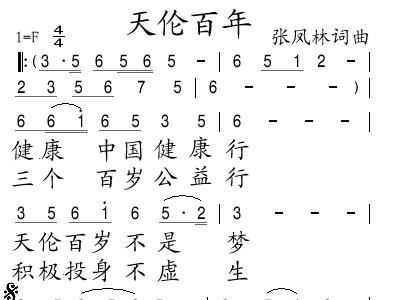 天伦百年
1=F 4/4 张凤林词曲
‖:(3·5 6 5 6 5 - | 6 5 1 2 - |
2 3 5 6 7 5 | 6 - - - )|
6 6 1 6 5 3 5 | 6 - - - |
健康 中国健康行
三个 百岁公益行
3 5 6 1 6 5·2 | 3 - - - |
天伦百岁不是 梦
积极投身不虚 生